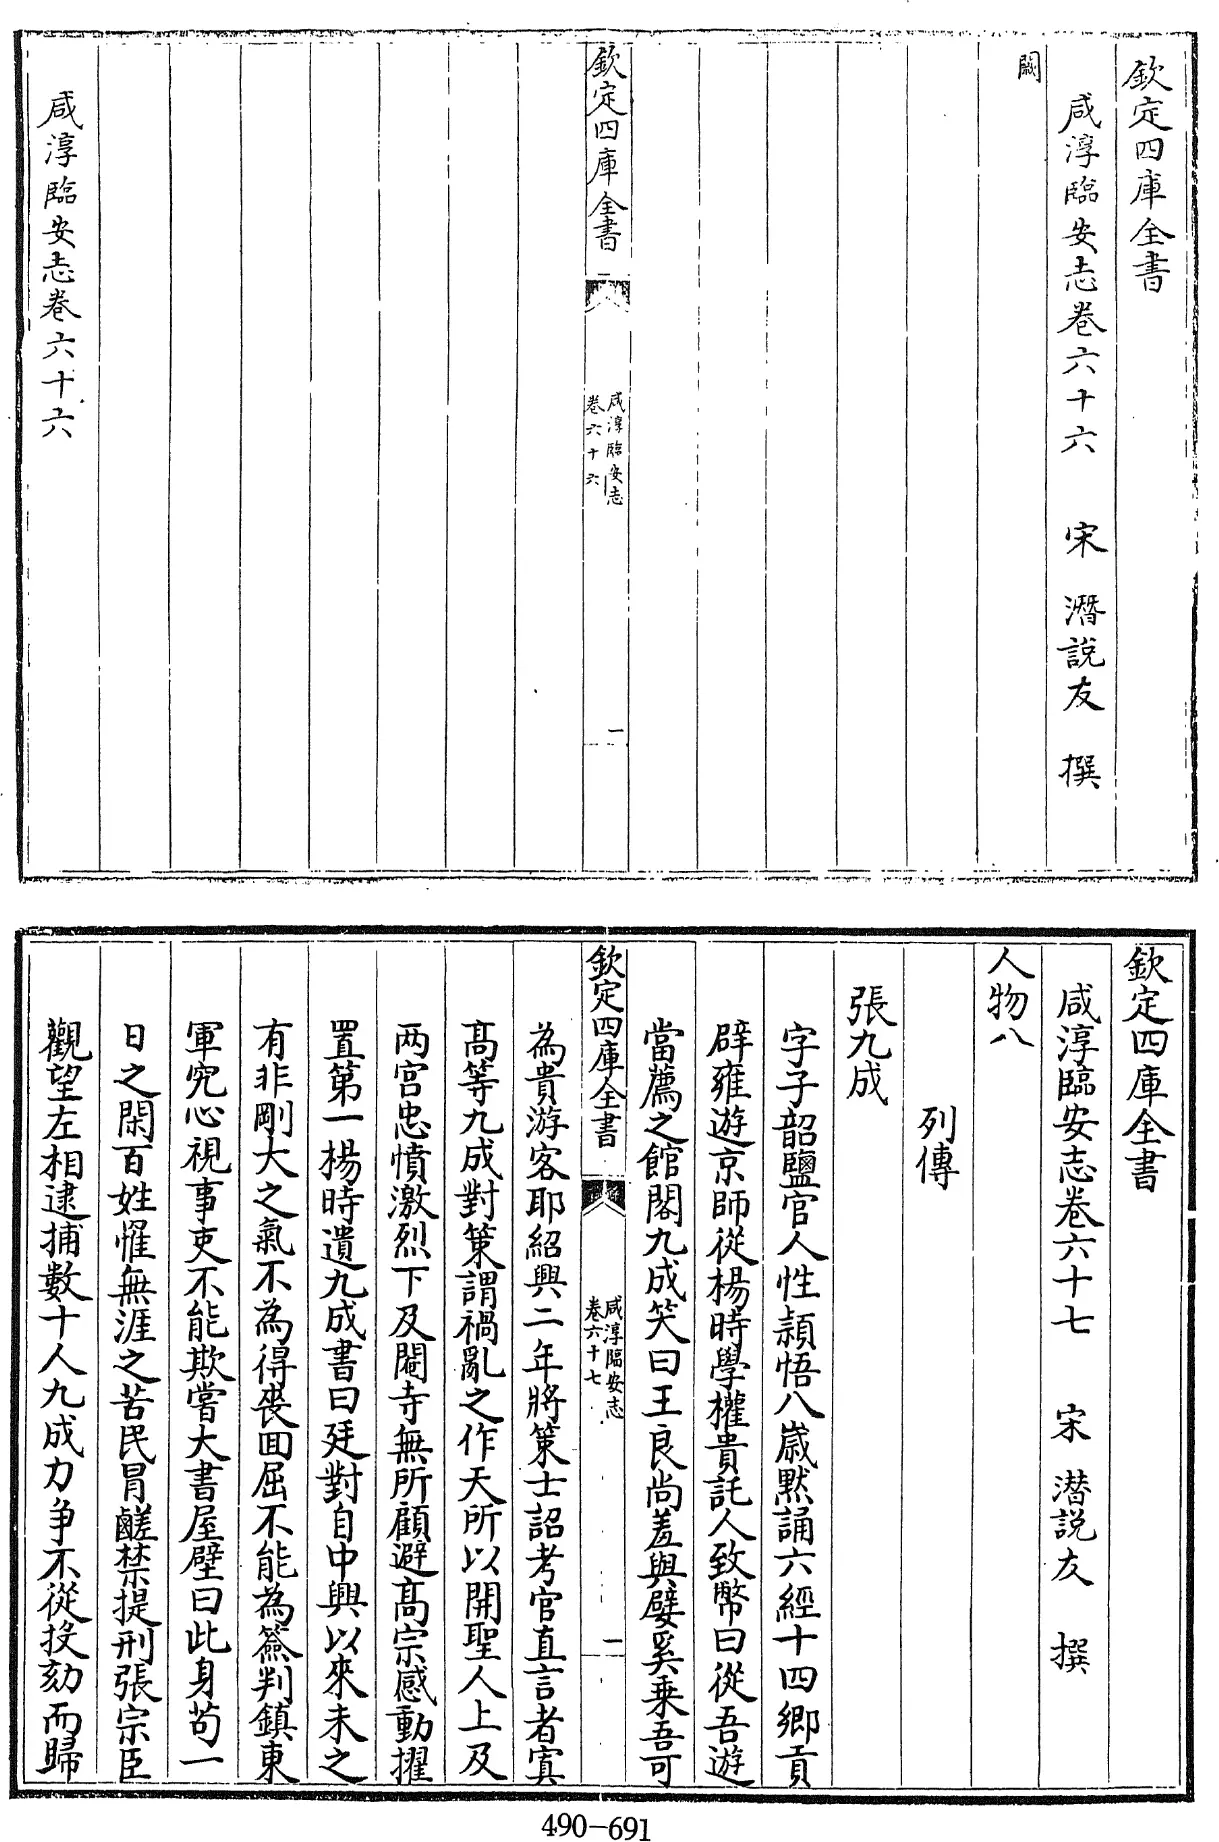 欽定四庫全書
咸淳臨安志卷六十六 宋 潛說友 撰
闕
欽定四庫全書
咸淳臨安志
卷六十六
一
咸淳臨安志卷六十六
欽定四庫全書
咸淳臨安志卷六十七 宋 潛說友 撰
人物八
列傳
張九成
字子韶鹽官人性穎悟八歲默誦六經十四鄉貢
辟雍遊京師從楊時學權貴託人致幣曰從吾遊
當薦之館閣九成笑曰王良尚羞與嬖奚乘吾可
欽定四庫全書
咸淳臨安志
卷六十七
一
為貴游客耶紹興二年將策士詔考官直言者寘
高等九成對策謂禍亂之作天所以開聖人上及
两宫忠憤激烈下及閹寺無所顧避髙宗感動擢
置第一楊時遺九成書曰廷對自中興以來未之
有非剛大之氣不為得喪囬屈不能為簽判鎮東
軍究心視事吏不能欺嘗大書屋壁曰此身苟一
日之閑百姓惟無涯之苦民冐鹺禁提刑張宗臣
觀望左相逮捕數十人九成力争不從投劾而歸
490-691